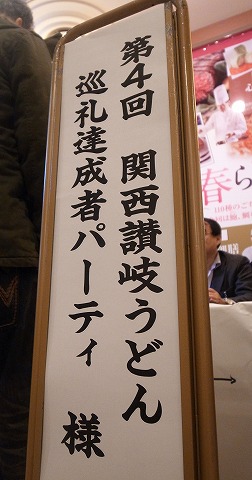 第4回 関西讃岐うどん
巡礼達成者パーティ 様
春ら